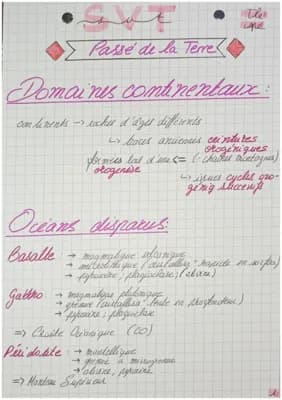 SVT
svt
Tle
spé
Passé de la Terre
Domaines continentaux:
continents → roches d'âges différents
↳ traces anciennes ceintures
orogéniques
formées lors d'une ⇐ (= chaînes montagnes)
orogenèse
↳ issues cycles oro-
génig successifs
Océans disparus:
Basalte → magmatique volcanique
→ microlithique (cristallisa° rapide en surface)
→ pyroxène, plagioclase, (olivine)
Gabbro → magmatique plutonique
→ grenue (cristallisa° lente en profondeur)
→ pyroxène, plagioclase
=> Croûte Océanique (CO)
Péridotite → mantellique
→ grenue à microgrenue
→ olivine, pyroxène
=> Manteau Supérieur